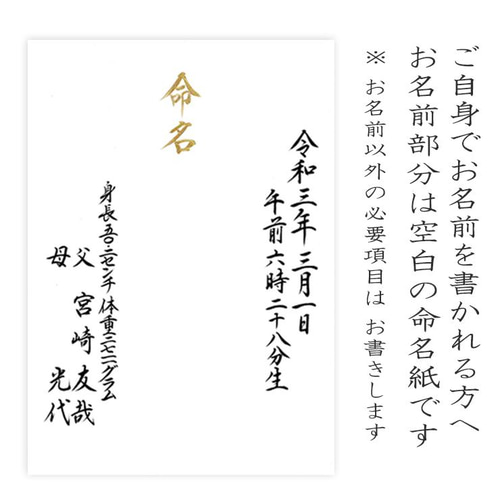 ご自身でお名前を書かれる方へ
お名前部分は空白の命名紙です
※ お名前以外の必要項目は お書きします
令和三年 三月一日
午前六時二十八分生
命名
身長 センチ 体重 グラム
父 宮崎 友哉
母 光代